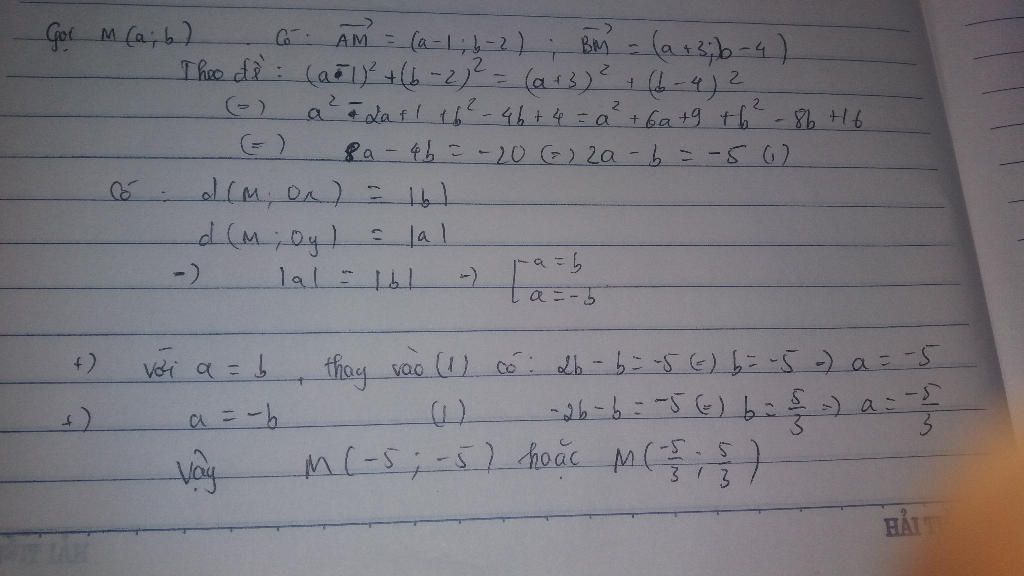 Gọi M(a;b) Có: AM→ = (a-1;b-2) ; BM→ = (a+3;b-4)
Theo đề: (a-1)² + (b-2)² = (a+3)² + (b-4)²
(=) a² - 2a+1 + b² - 4b+4 = a² + 6a+9 + b² - 8b +16
(=) 8a - 4b = -20 (=) 2a - b = -5 (1)
Có : d(M; Ox) = |b|
d(M; Oy) = |a|
-) |a| = |b| -) [ a = b
a = -b
+) với a = b, thay vào (1) có: 2b - b = -5 (=) b = -5 -) a = -5
+) a = -b (1) -2b-b = -5 (=) b = 5/3 -) a = -5/3
Vậy M(-5; -5) hoặc M(-5/3; 5/3)
HẢI T